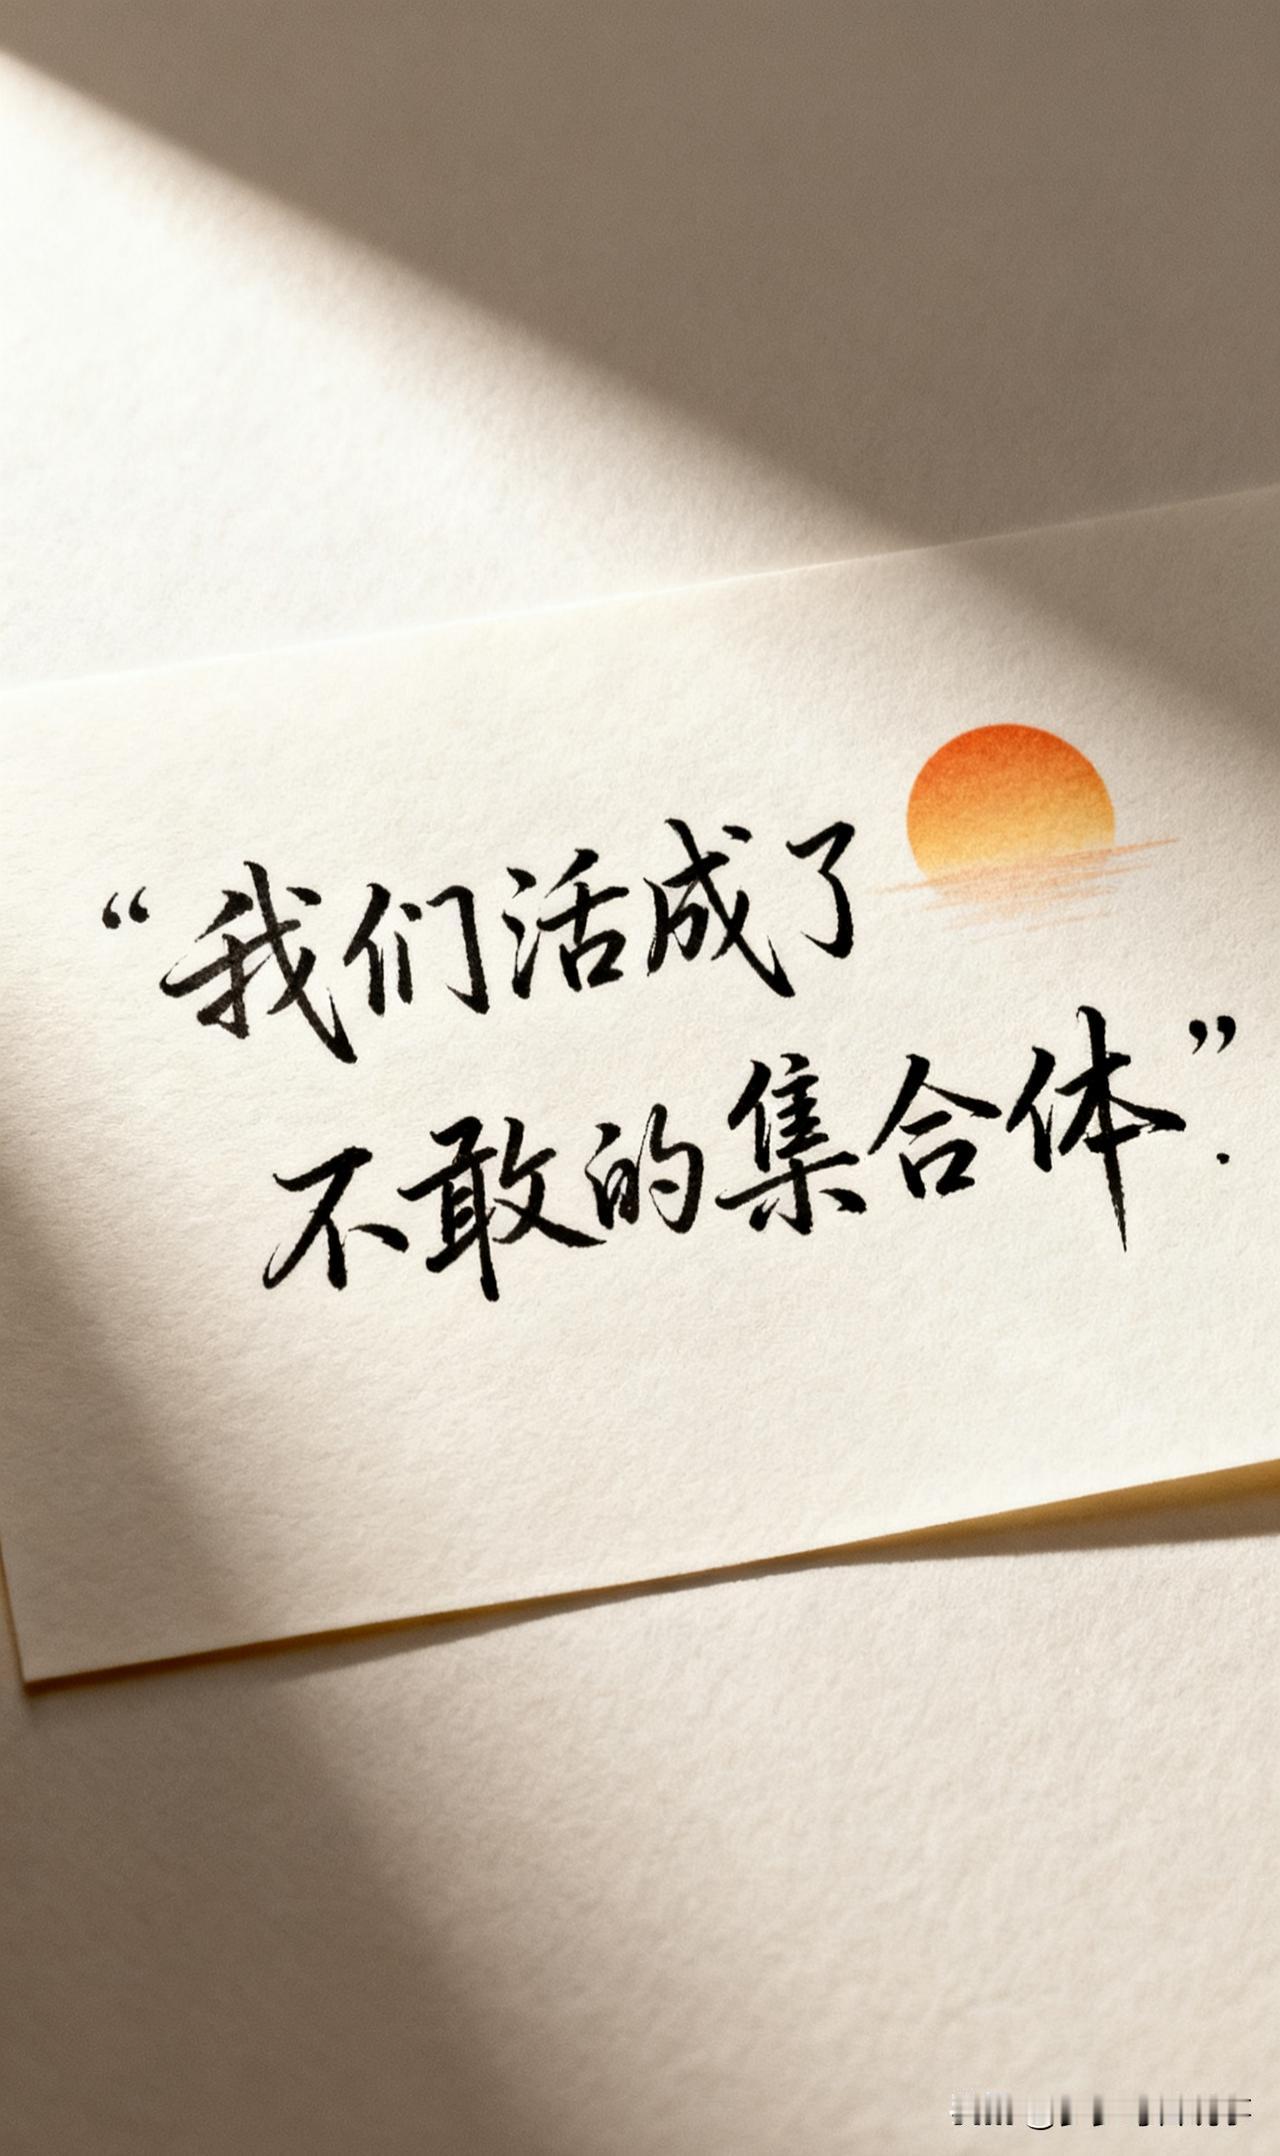 “我们活成了
不敢的集合体”.